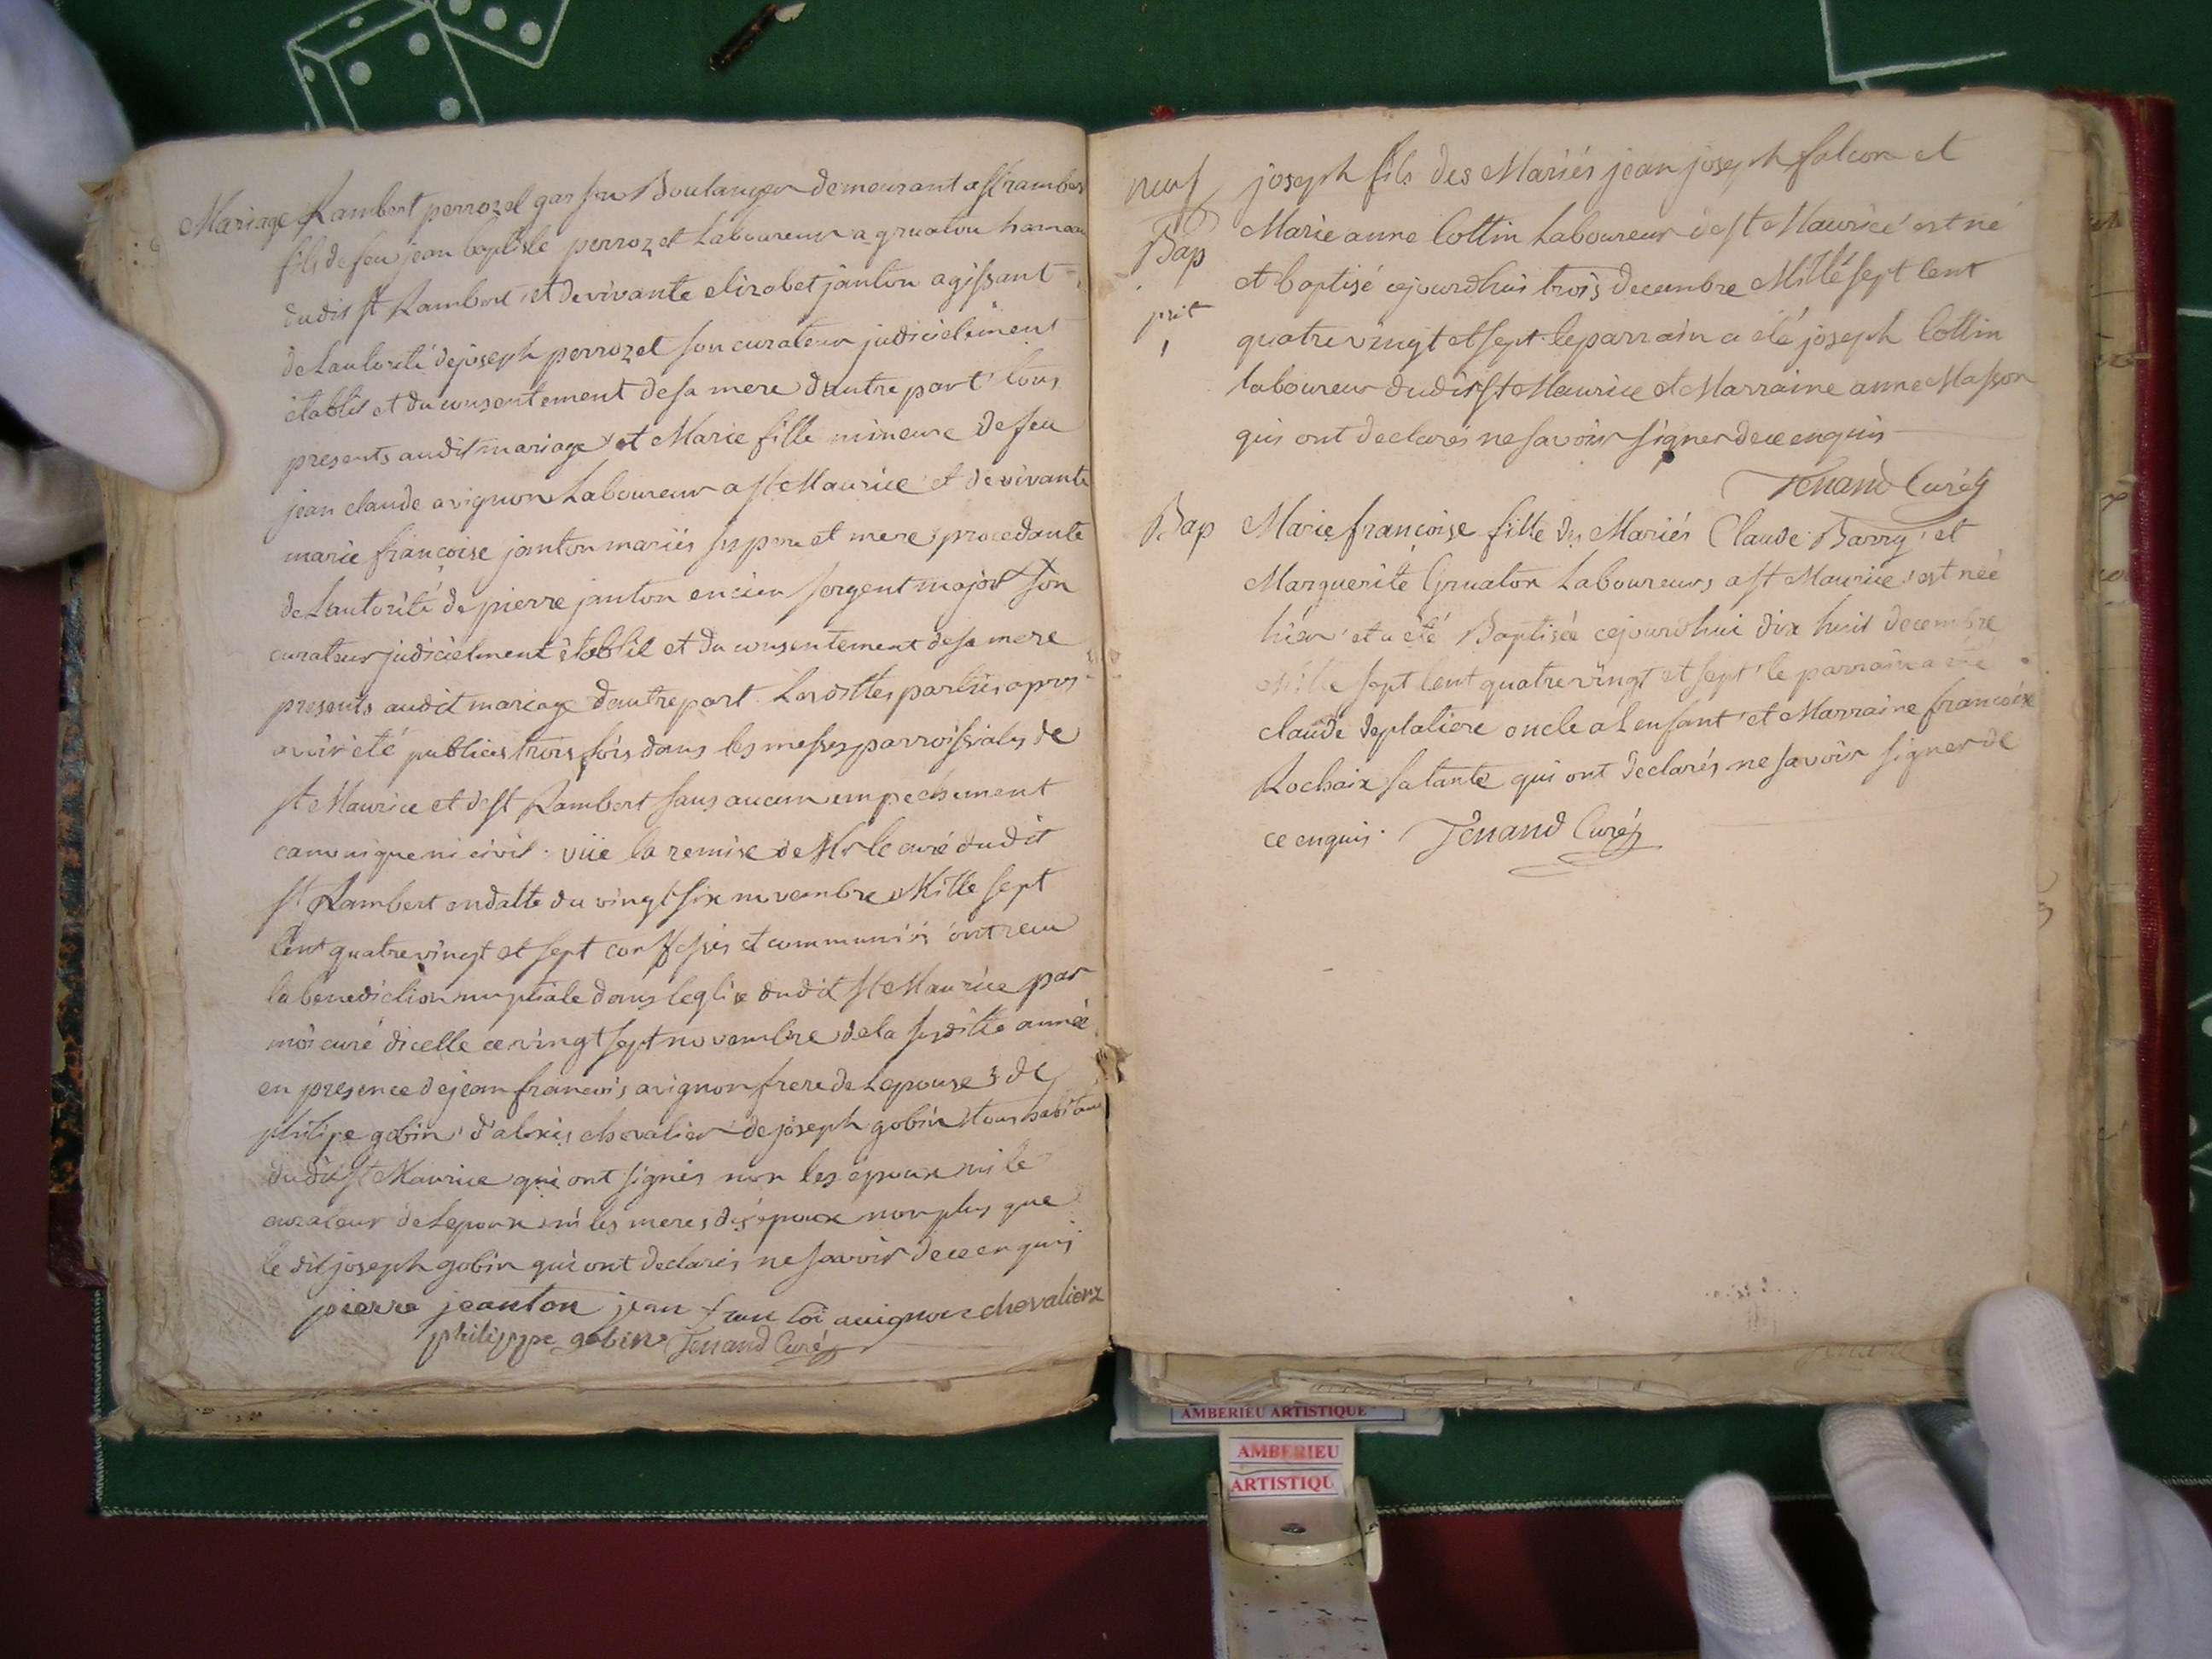 Mariage Rambert perrozet garson Boulanger demeurant a st rambert
fils de feu jean baptiste perrozet Laboureur a gruaton hameau
dudit st Rambert et de vivante elizabet janton agissant
de Lautorité de joseph perrozet son curateur judicielement
établis et du consentement de sa mere d'autre part tous
presents audit mariage et Marie fille mineure de feu
jean claude avignon Laboureur a st Maurice et de vivante
marie françoise janton mariés ses pere et mere procedante
de Lautorité de pierre janton encien sergent major son
curateur judicielment établit et du consentement de sa mere
presents audit mariage d'autre part. Lesdittes parties apres
avoir été publiées trois fois dans les messes parroissiales de
st Maurice et de st Rambert sans aucun empechement
canonique ni civil. vüe la remise de Mr le curé dudit
st Rambert en datte du vingt six novembre Mille sept
Cent quatre vingt et sept confessés et communiés ont recu
la benediction nuptiale dans leglise dudit st Maurice par
moi curé dicelle ce vingt sept novembre de la susditte année
en presence de jean francois avignon frere de Lepouse de
philipe gobin d'alexis chevalier de joseph gobin tous habitans
dudit st Maurice qui ont signés non les époux ni le
curateur de Lepoux ni les meres des époux non plus que
le dit joseph gobin qui ont declarés ne savoir de ce enquis
pierre jeanton jean fran coi auignon chevalier
philippe gobin Tenand Curé
neuf joseph fils des Mariés jean joseph falcon et
Bap Marie anne Cottin Laboureur de st Maurice est né
et baptisé cejourdhui trois decembre Mille sept Cent
quatre vingt et sept le parrain a été joseph Cottin
laboureur dudit st Maurice et Marraine anne Masson
qui ont declarés ne savoir signer de ce enquis
Tenand Curé
Bap Marie françoise fille des Mariés Claude Barry et
Marguerite Gruaton Laboureurs a st Maurice est née
hier et a été Baptisée cejourdhui dix huit decembre
Mille sept Cent quatre vingt et sept le parrain a été
claude deplatiere oncle a Lenfant et Marraine francoise
Rochaix sa tante qui ont declarés ne savoir signer de
ce enquis. Tenand Curé
AMBERIEU ARTISTIQUE
AMBERIEU
ARTISTIQU